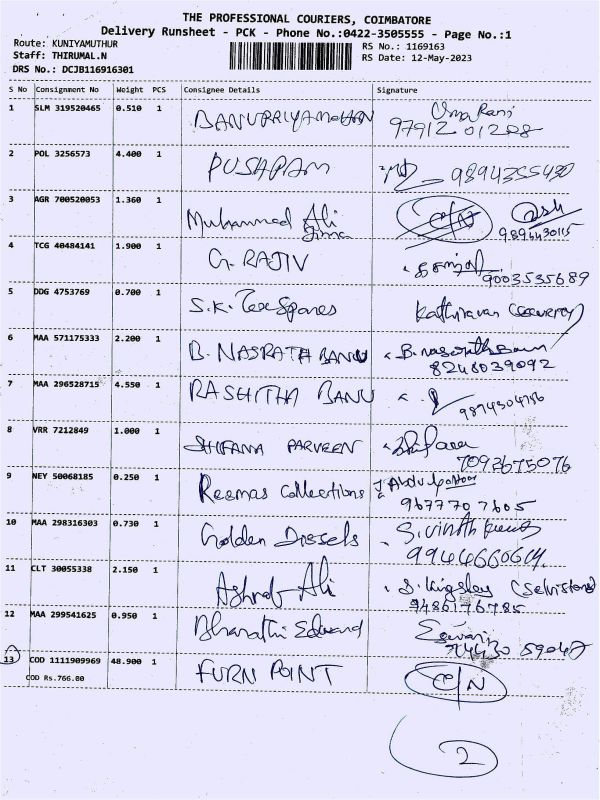 THE PROFESSIONAL COURIERS, COIMBATORE
Delivery Runsheet - PCK - Phone No.:0422-3505555 - Page No.:1
Route: KUNIYAMUTHUR RS No.: 1169163
Staff: THIRUMAL.N RS Date: 12-May-2023
DRS No.: DCJB116916301
S No Consignment No Weight PCS Consignee Details Signature
1 SLM 319520465 0.510 1 BANUPRIYAMOHAN Uma Rani
97912 01288
2 POL 3256573 4.400 1 PUSHPAM 9894355430
3 AGR 700520053 1.360 1 Muhammed Ali C/N
Jinna 9894430115
4 TCG 40484141 1.900 1 G. RAJIV
9003535689
5 DDG 4753769 0.700 1 S.K. Tex Spares Kathiravan (Security)
6 MAA 571175333 2.200 1 B. NASRATH BANU
8248039092
7 MAA 296528715 4.550 1 RASHITHA BANU 9894504786
8 VRR 7212849 1.000 1 SHIFANA PARVEEN
7092675076
9 NEY 50068185 0.250 1 Reemas Collections J. Abdul
967770 7605
10 MAA 298316303 0.730 1 Golden Diesels S. Vinoth
9944660614
11 CLT 30055338 2.150 1 Ashraf Ali S. Kingsley
9486176785
12 MAA 299541625 0.950 1 Bharathi Edward
13 COD 1111909969 48.900 1 FURN POINT C/N
COD Rs.766.00
2